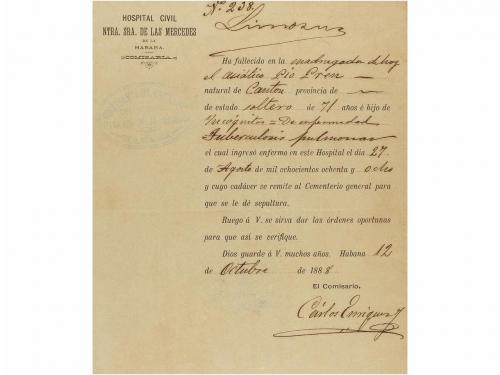 HOSPITAL CIVIL
NTRA. SRA. DE LAS MERCEDES
DE LA
HABANA.
COMISARIA.
Nº 238.
Limosna
Ha fallecido en la madrugada de hoy
el asiático Pio Pren
natural de Canton provincia de
de estado soltero de 71 años é hijo de
Incógnitos = De enfermedad
Tuberculosis pulmonar
el cual ingresó enfermo en este Hospital el dia 27
de Agosto de mil ochocientos ochenta y ocho
y cuyo cadáver se remite al Cementerio general para
que se le dé sepultura.
Ruego á V. se sirva dar las órdenes oportunas
para que así se verifique.
Dios guarde á V. muchos años. Habana 12
de Octubre de 1888.
El Comisario.
Cárlos Enriquez